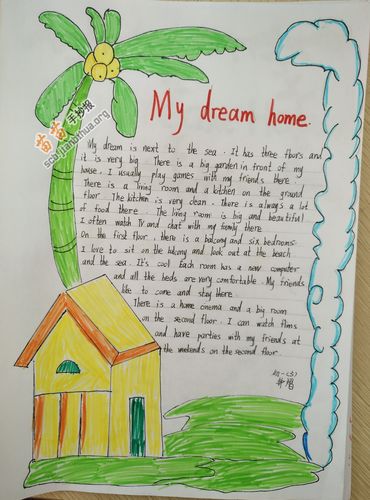 My dream home.
My dream is next to the sea. It has three floors and
it is very big. There is a big garden in front of my
house. I usually play games with my friends there.
There is a living room and a kitchen on the ground
floor. The kitchen is very clean. There is always a lot
of food there. The living room is big and beautiful
I often watch TV and chat with my family there
On the first floor, there is a balcony and six bedrooms.
I love to sit on the balcony and look out at the beach
and the sea. It's cool. Each room has a new computer
and all the beds are very comfortable. My friends
like to come and stay there.
There is a home cinema and a big room
on the second floor. I can watch films
and have parties with my friends at
the weekends on the second floor.
手抄报
scb.jianbihua.org